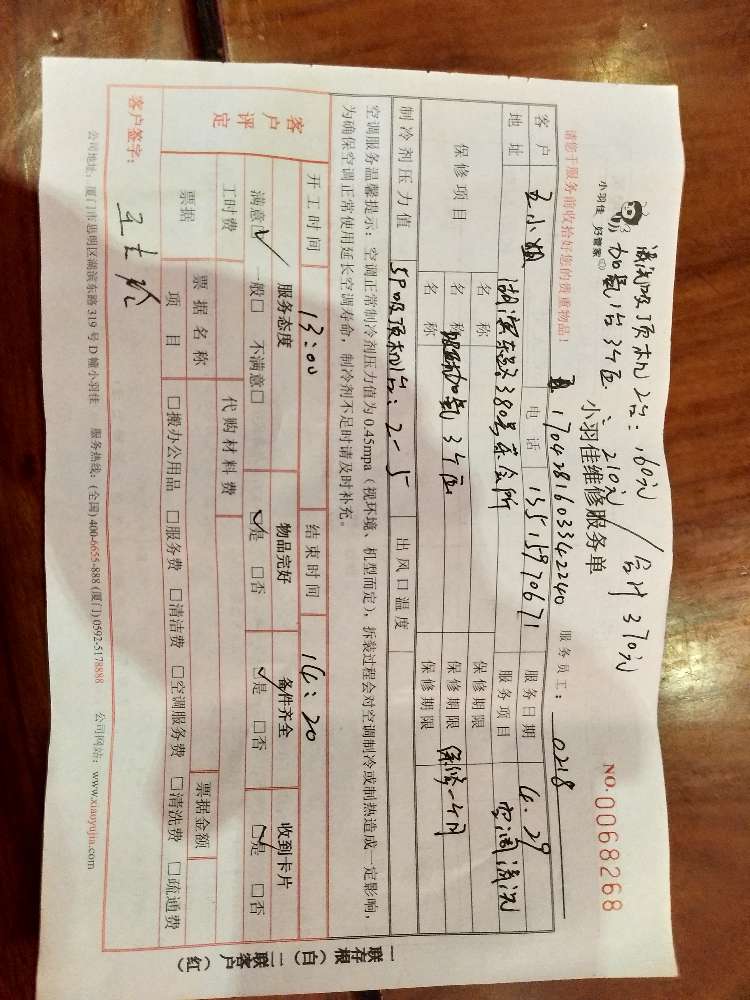 清洗吸顶机2台：160元
加氟1台3个压：210元 / 合计370元
小羽佳 好管家
小羽佳维修服务单
NO.0068268
请您于服务前收拾好您的贵重物品！
1704281603342240 服务员工：0218
客户 王小姐 电话 13515970671 服务日期 4.29
地址 湖滨东路380号 会所 服务项目 空调清洗
保修项目 名称 保修期限
名称 加氟3个压 保修期限 保修一个月
名称 保修期限
制冷剂压力值 5P吸顶机 2-5 出风口温度
空调服务温馨提示：空调正常制冷剂压力值为0.45mpa（视环境、机型而定），拆装过程会对空调制冷或制热造成一定影响，
为确保空调正常使用延长空调寿命，制冷剂不足时请及时补充。
开工时间 13:00 结束时间 14:20
客户评定 服务态度 物品完好 备件齐全 收到卡片
满意☑ 一般□ 不满意□ ☑是 □否 ☑是 □否 ☑是 □否
工时费 代购材料费
票据 票据名称 票据金额
项目 □搬办公用品 □服务费 □清洁费 □空调服务费 □清洗费 □疏通费
客户签字：
公司地址：厦门市思明区湖滨东路319号D幢小羽佳 服务热线：(全国)400-6655-888 (厦门)0592-5178888 公司网站：www.xiaoyujia.com
一联存根（白）二联客户（红）